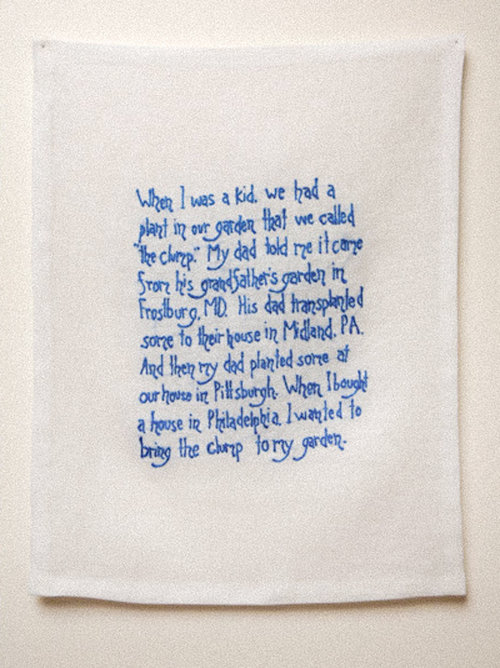 When I was a kid, we had a
plant in our garden that we called
"the clump." My dad told me it came
from his grandfather's garden in
Frostburg, MD. His dad transplanted
some to their house in Midland, PA.
And then my dad planted some at
our house in Pittsburgh. When I bought
a house in Philadelphia, I wanted to
bring the clump to my garden.